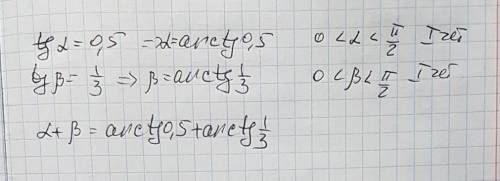 tg α = 0,5 ⇒ α = arctg 0,5    0 < α < π/2 - I чет
tg β = 1/3 ⇒ β = arctg 1/3    0 < β < π/2 - I чет
α + β = arctg 0,5 + arctg 1/3